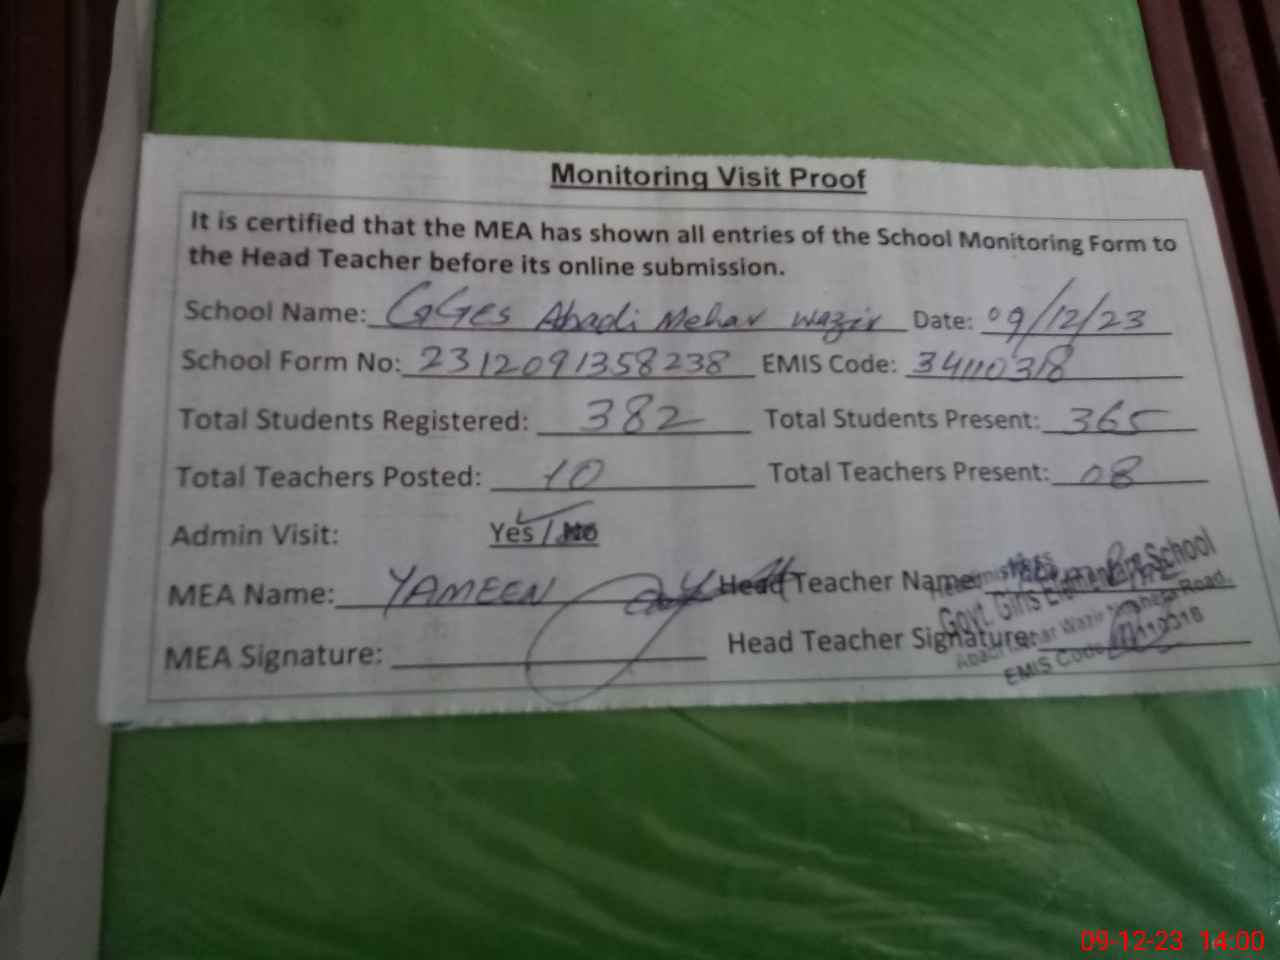 Monitoring Visit Proof
It is certified that the MEA has shown all entries of the School Monitoring Form to
the Head Teacher before its online submission.
School Name: GGES Abadi Mehar Wazir Date: 09/12/23
School Form No: 2312091358238 EMIS Code: 34110318
Total Students Registered: 382 Total Students Present: 365
Total Teachers Posted: 10 Total Teachers Present: 08
Admin Visit: Yes / No
MEA Name: YAMEEN Head Teacher Name:
Govt. Girls Elementary School
MEA Signature: Head Teacher Signature:
Wazir Road
EMIS Code
09-12-23 14:00